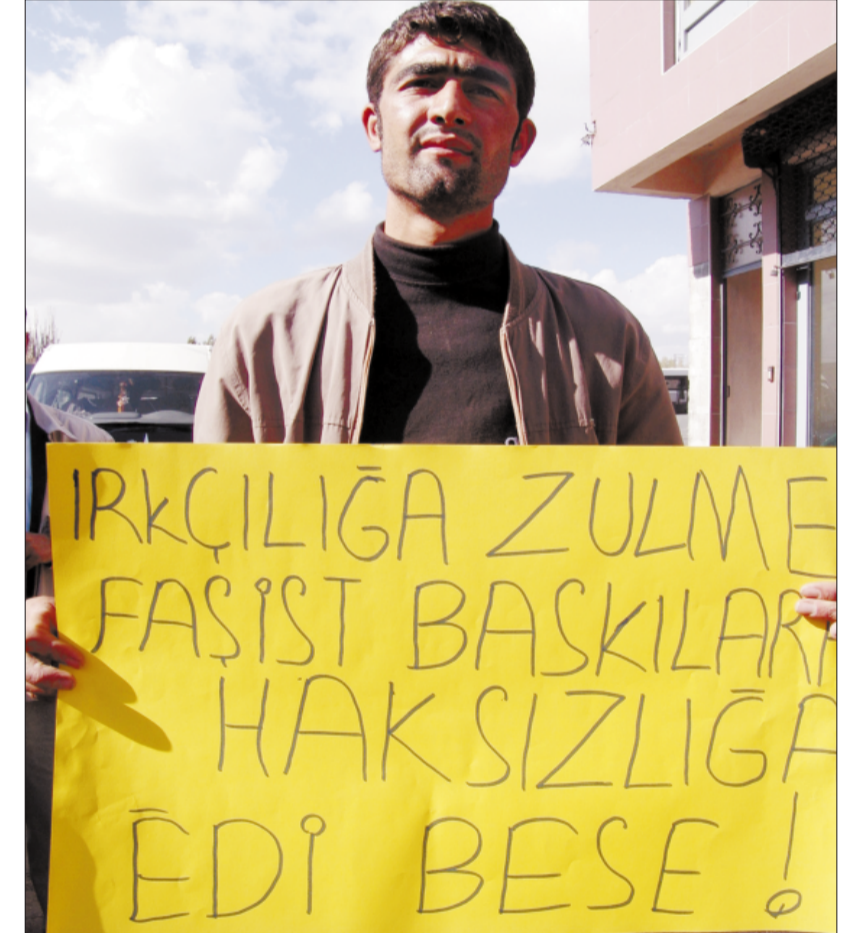 IRKÇILIĞA ZULME
FAŞİST BASKILAR
HAKSIZLIĞA
ÊDİ BESE !